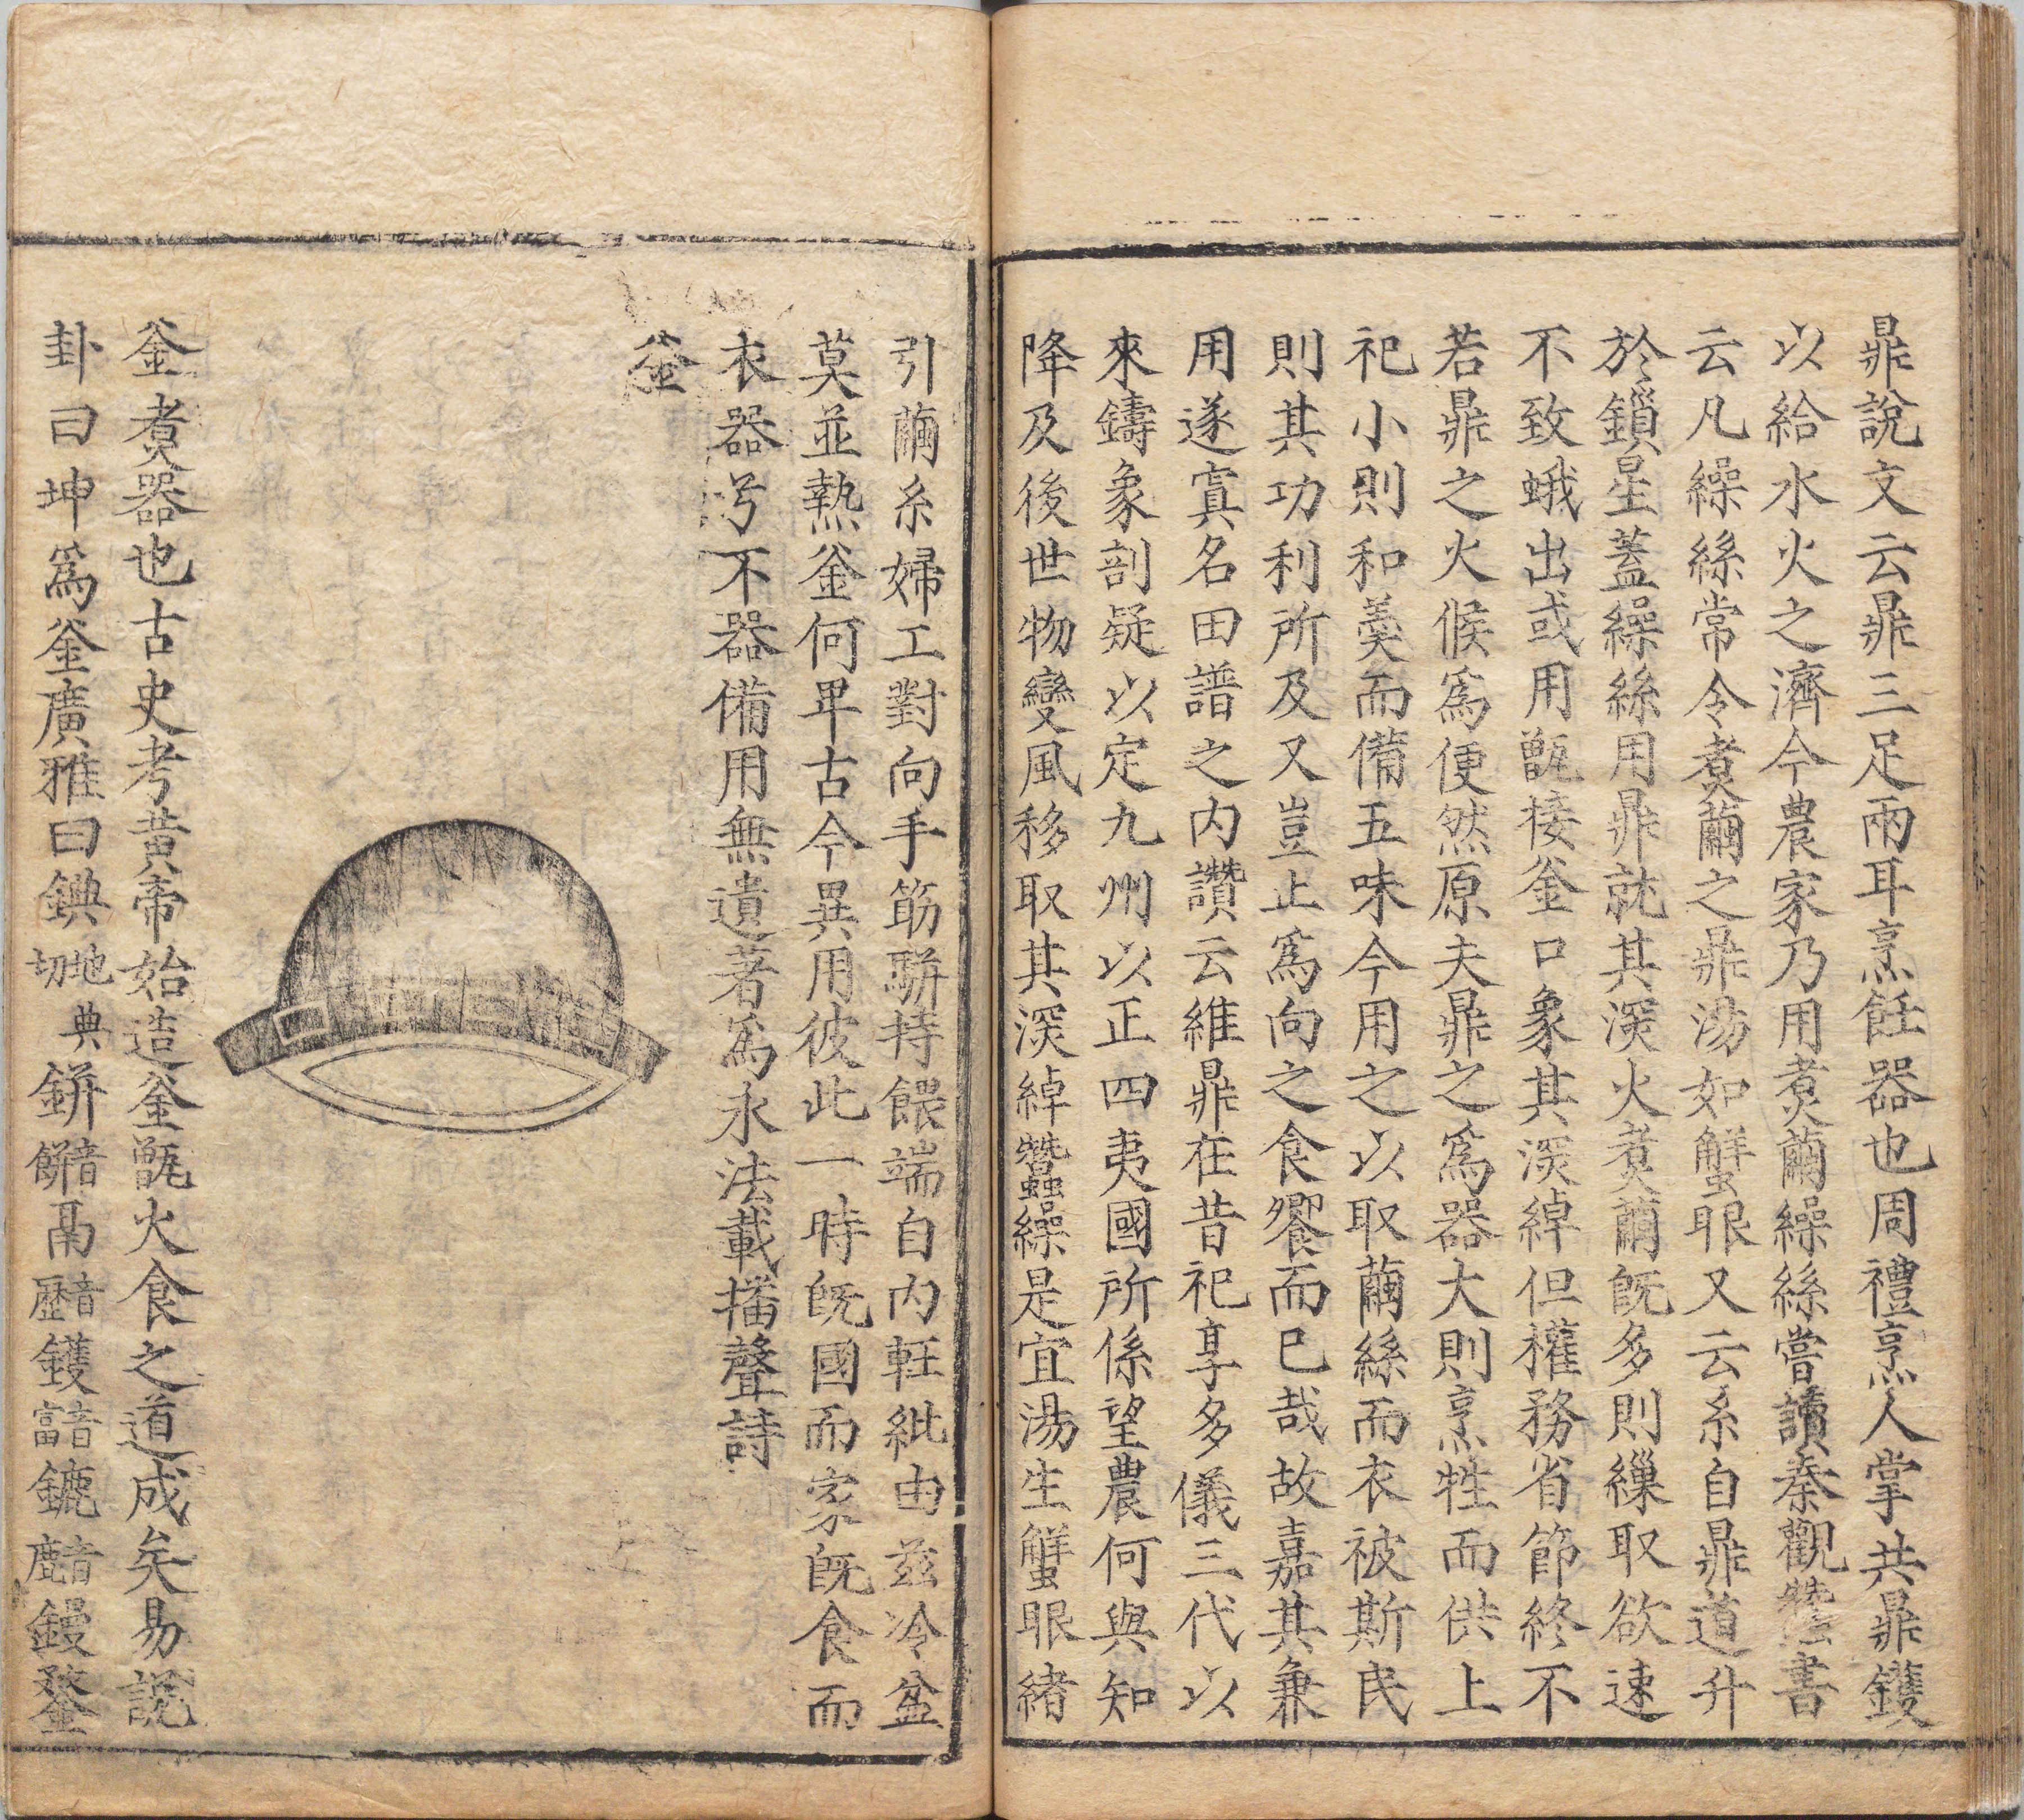 鼎說文云鼎三足兩耳烹飪器也周禮烹人掌共鼎鑊
以給水火之濟今農家乃用煑繭繰絲嘗讀秦觀蠶書
云凡繰絲常令煑繭之鼎湯如蟹眼又云糸自鼎道升
於鎻星蓋繰絲用鼎就其深火煑繭旣多則繅取欲速
不致蛾出或用甑接釜口象其深綽但權務省節終不
若鼎之火候爲便然原夫鼎之爲器大則烹牲而供上
祀小則和羮而備五味今用之以取繭絲而衣被斯民
則其功利所及又豈止爲向之食饗而已哉故嘉其兼
用遂寘名田譜之内讚云維鼎在昔祀享多儀三代以
來鑄象剖疑以定九州以正四夷國所係望農何與知
降及後世物變風移取其深綽蠶繰是宜湯生蟹眼緒
引繭糸婦工對向手筯駢持餵端自内軖紕由兹冷盆
莫並熱釜何畀古今異用彼此一時旣國而家旣食而
衣器兮不器備用無遺著爲永法載播聲詩
釜
釜煑器也古史考黄帝始造釜甑火食之道成矣易說
卦曰坤爲釜廣雅曰錪地典切鉼音餠鬲音歷鑊音富鏕音鹿鏝鍪